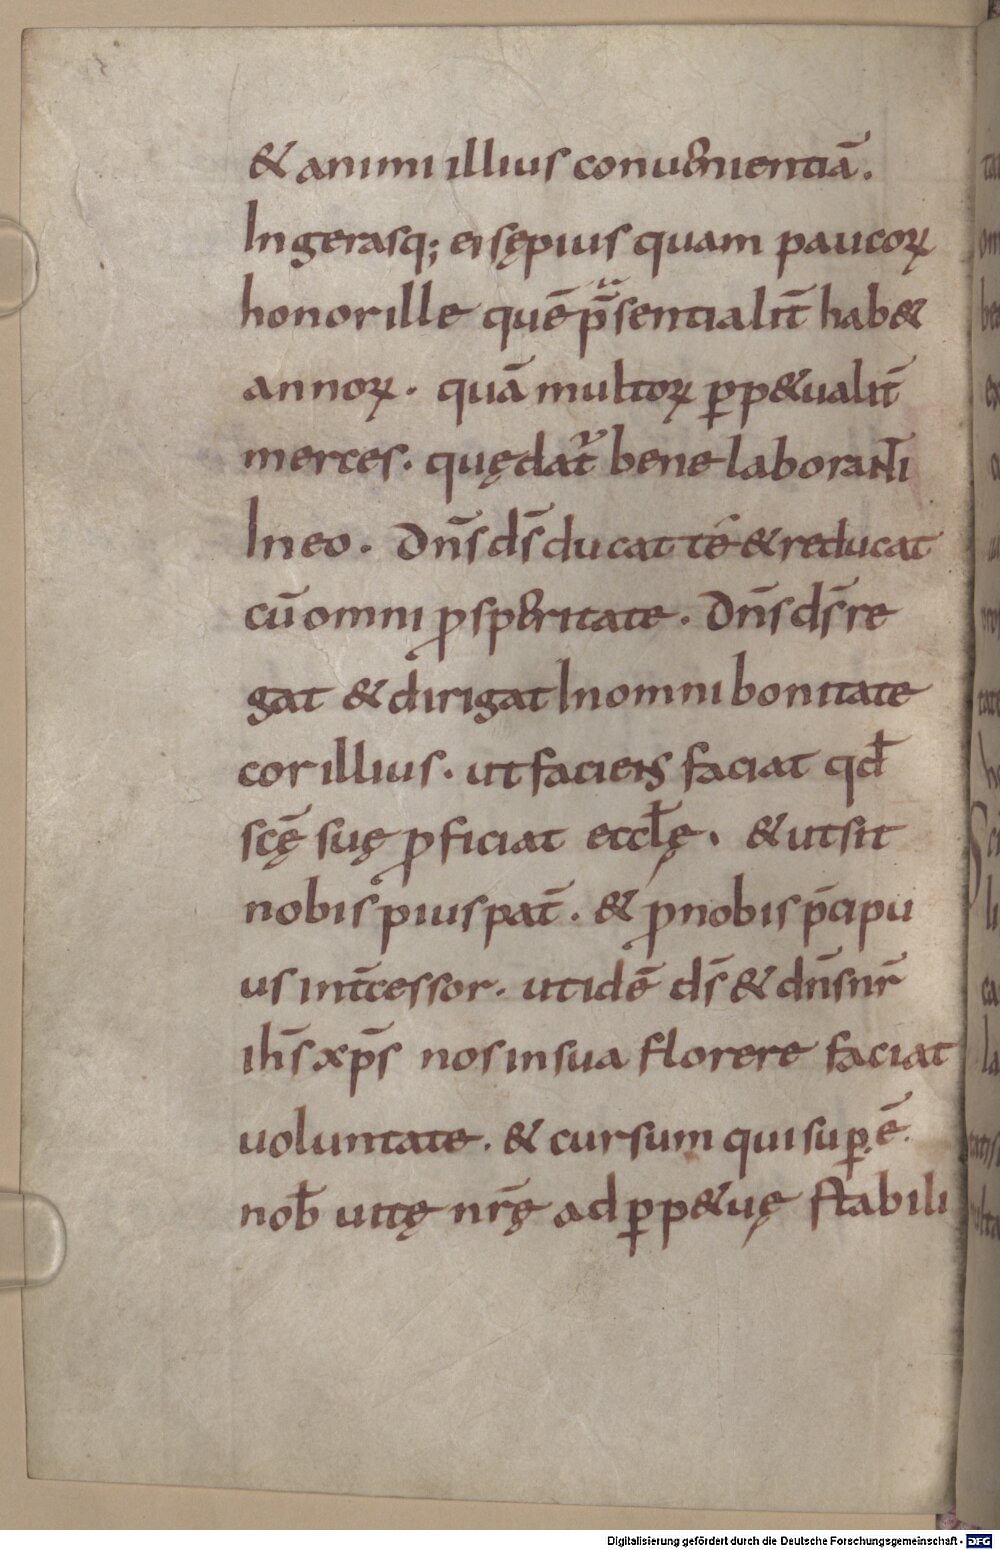 & animi illius conuenientiā.
Ingerasq; ei sępius quam paucoꝝ
honor ille quē p̄sentialit̄ hab&
annoꝝ. quā multoꝝ ꝑp&ualit̄
merces. quę dat᷑ bene laboranti
In eo. Dn̄s ds̄ ducat te & reducat
cū omni ꝓsperitate. Dn̄s ds̄ re
gat & dirigat In omni bonitate
cor illius. ut faciens faciat qđ
scę̄ suę ꝓficiat eccłę. & ut sit
nobis pius pat̄. & ꝓ nobis p̄cipu
us int̄cessor. ut idē ds̄ & dn̄s nr̄
ih̄s xp̄s nos in sua florere faciat
uoluntate. & cursum qui suꝑ.ē.
nob̄ uitę nr̄ę ad ꝑp&uę stabili